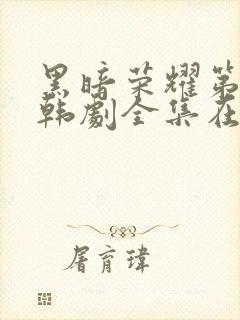 黑暗荣耀第
韩劇全集在
屠育瑋